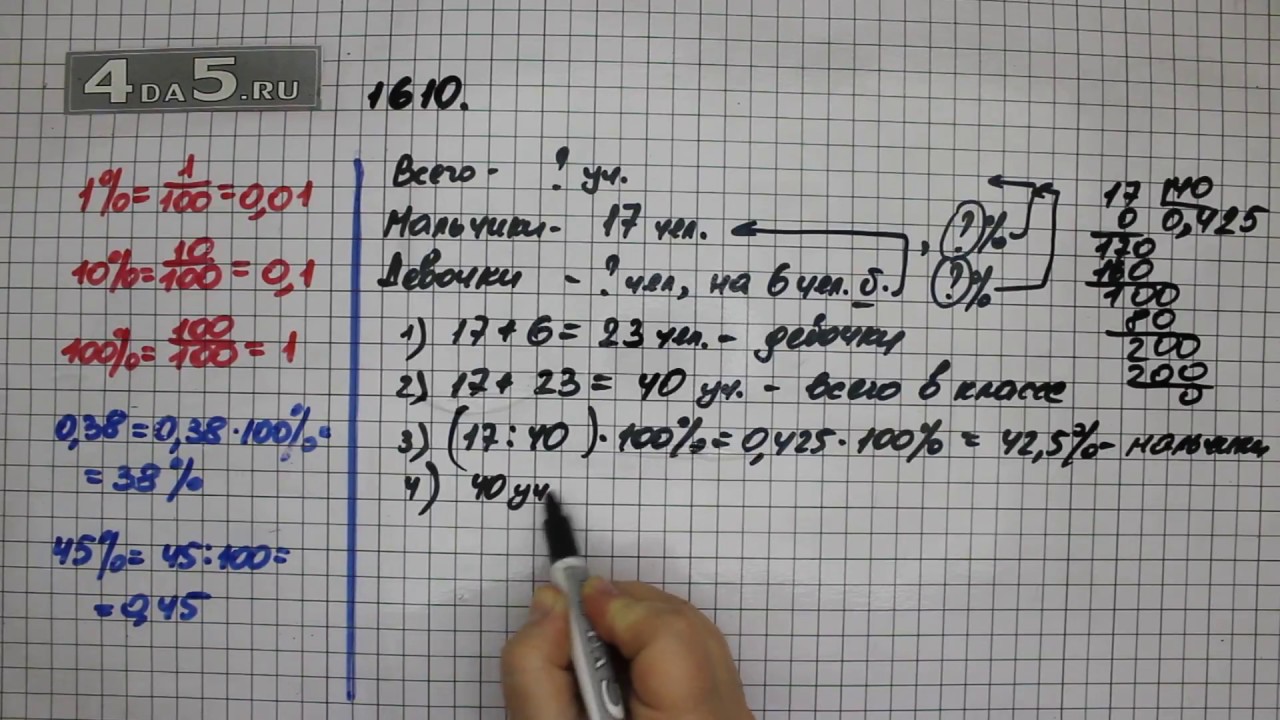 4DA5.RU
1610.
1% = 1/100 = 0,01
10% = 10/100 = 0,1
100% = 100/100 = 1
0,38 = 0,38 · 100% =
= 38%
45% = 45 : 100 =
= 0,45
Всего - ? уч.
Мальчики - 17 чел. , ? %
Девочки - ? чел, на 6 чел. б. ? %
1) 17 + 6 = 23 чел. - девочки
2) 17 + 23 = 40 уч. - всего в классе
3) (17 : 40) · 100% = 0,425 · 100% = 42,5% - мальчики
4) 40 уч
17 40
0 0,425
170
160
100
80
200
200
0